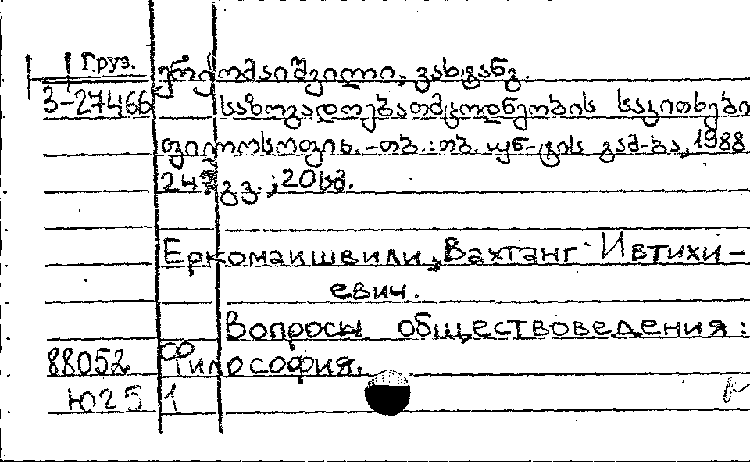 Груз. ერქომაიშვილი, ვახტანგ.
3-27466 საზოგადოებათმცოდნეობის საკითხები
ფილოსოფია. -თბ.: თბ. უნ-ტის გამ-ბა, 1988
გვ.; 20სმ.
Еркомаишвили, Вахтанг Ивтихи-
евич.
Вопросы обществоведения:
88052 Философия.
Ю25 1